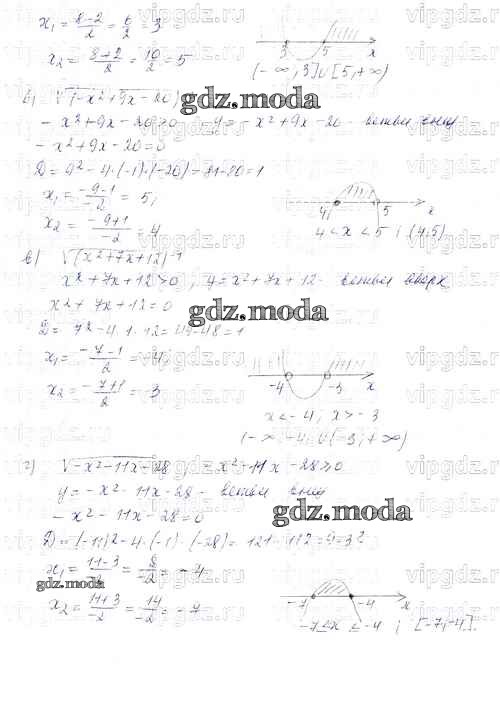 x₁ = (8-2)/2 = 6/2 = 3
x₂ = (8+2)/2 = 10/2 = 5
3 5 x
(-∞; 3]∪[5; +∞)
б) √(-x²+9x-20)
gdz.moda
-x²+9x-20>0 ; y = -x²+9x-20 - ветви вниз
-x²+9x-20=0
D = 9²-4·(-1)·(-20) = 81-80=1
x₁ = (-9-1)/-2 = 5;
x₂ = (-9+1)/-2 = 4
4 5 x
4 < x < 5 ; (4;5)
в) √(x²+7x+12)⁻¹
x²+7x+12>0 ; y = x²+7x+12 - ветви вверх
x²+7x+12=0
gdz.moda
D = 7²-4·1·12=49-48=1
x₁ = (-7-1)/2 = -4;
x₂ = (-7+1)/2 = -3
-4 -3 x
x<-4; x>-3
(-∞; -4)∪(-3; +∞)
г) √-x²-11x-28 -x²-11x-28≥0
y = -x²-11x-28 - ветви вниз
-x²-11x-28=0
gdz.moda
D = (-11)²-4·(-1)·(-28) = 121-112=9=3²
x₁ = (11-3)/-2 = 8/-2 = -4
gdz.moda
x₂ = (11+3)/-2 = 14/-2 = -7
-7 -4 x
-7≤x≤-4 ; [-7;-4].
vipgdz.ru